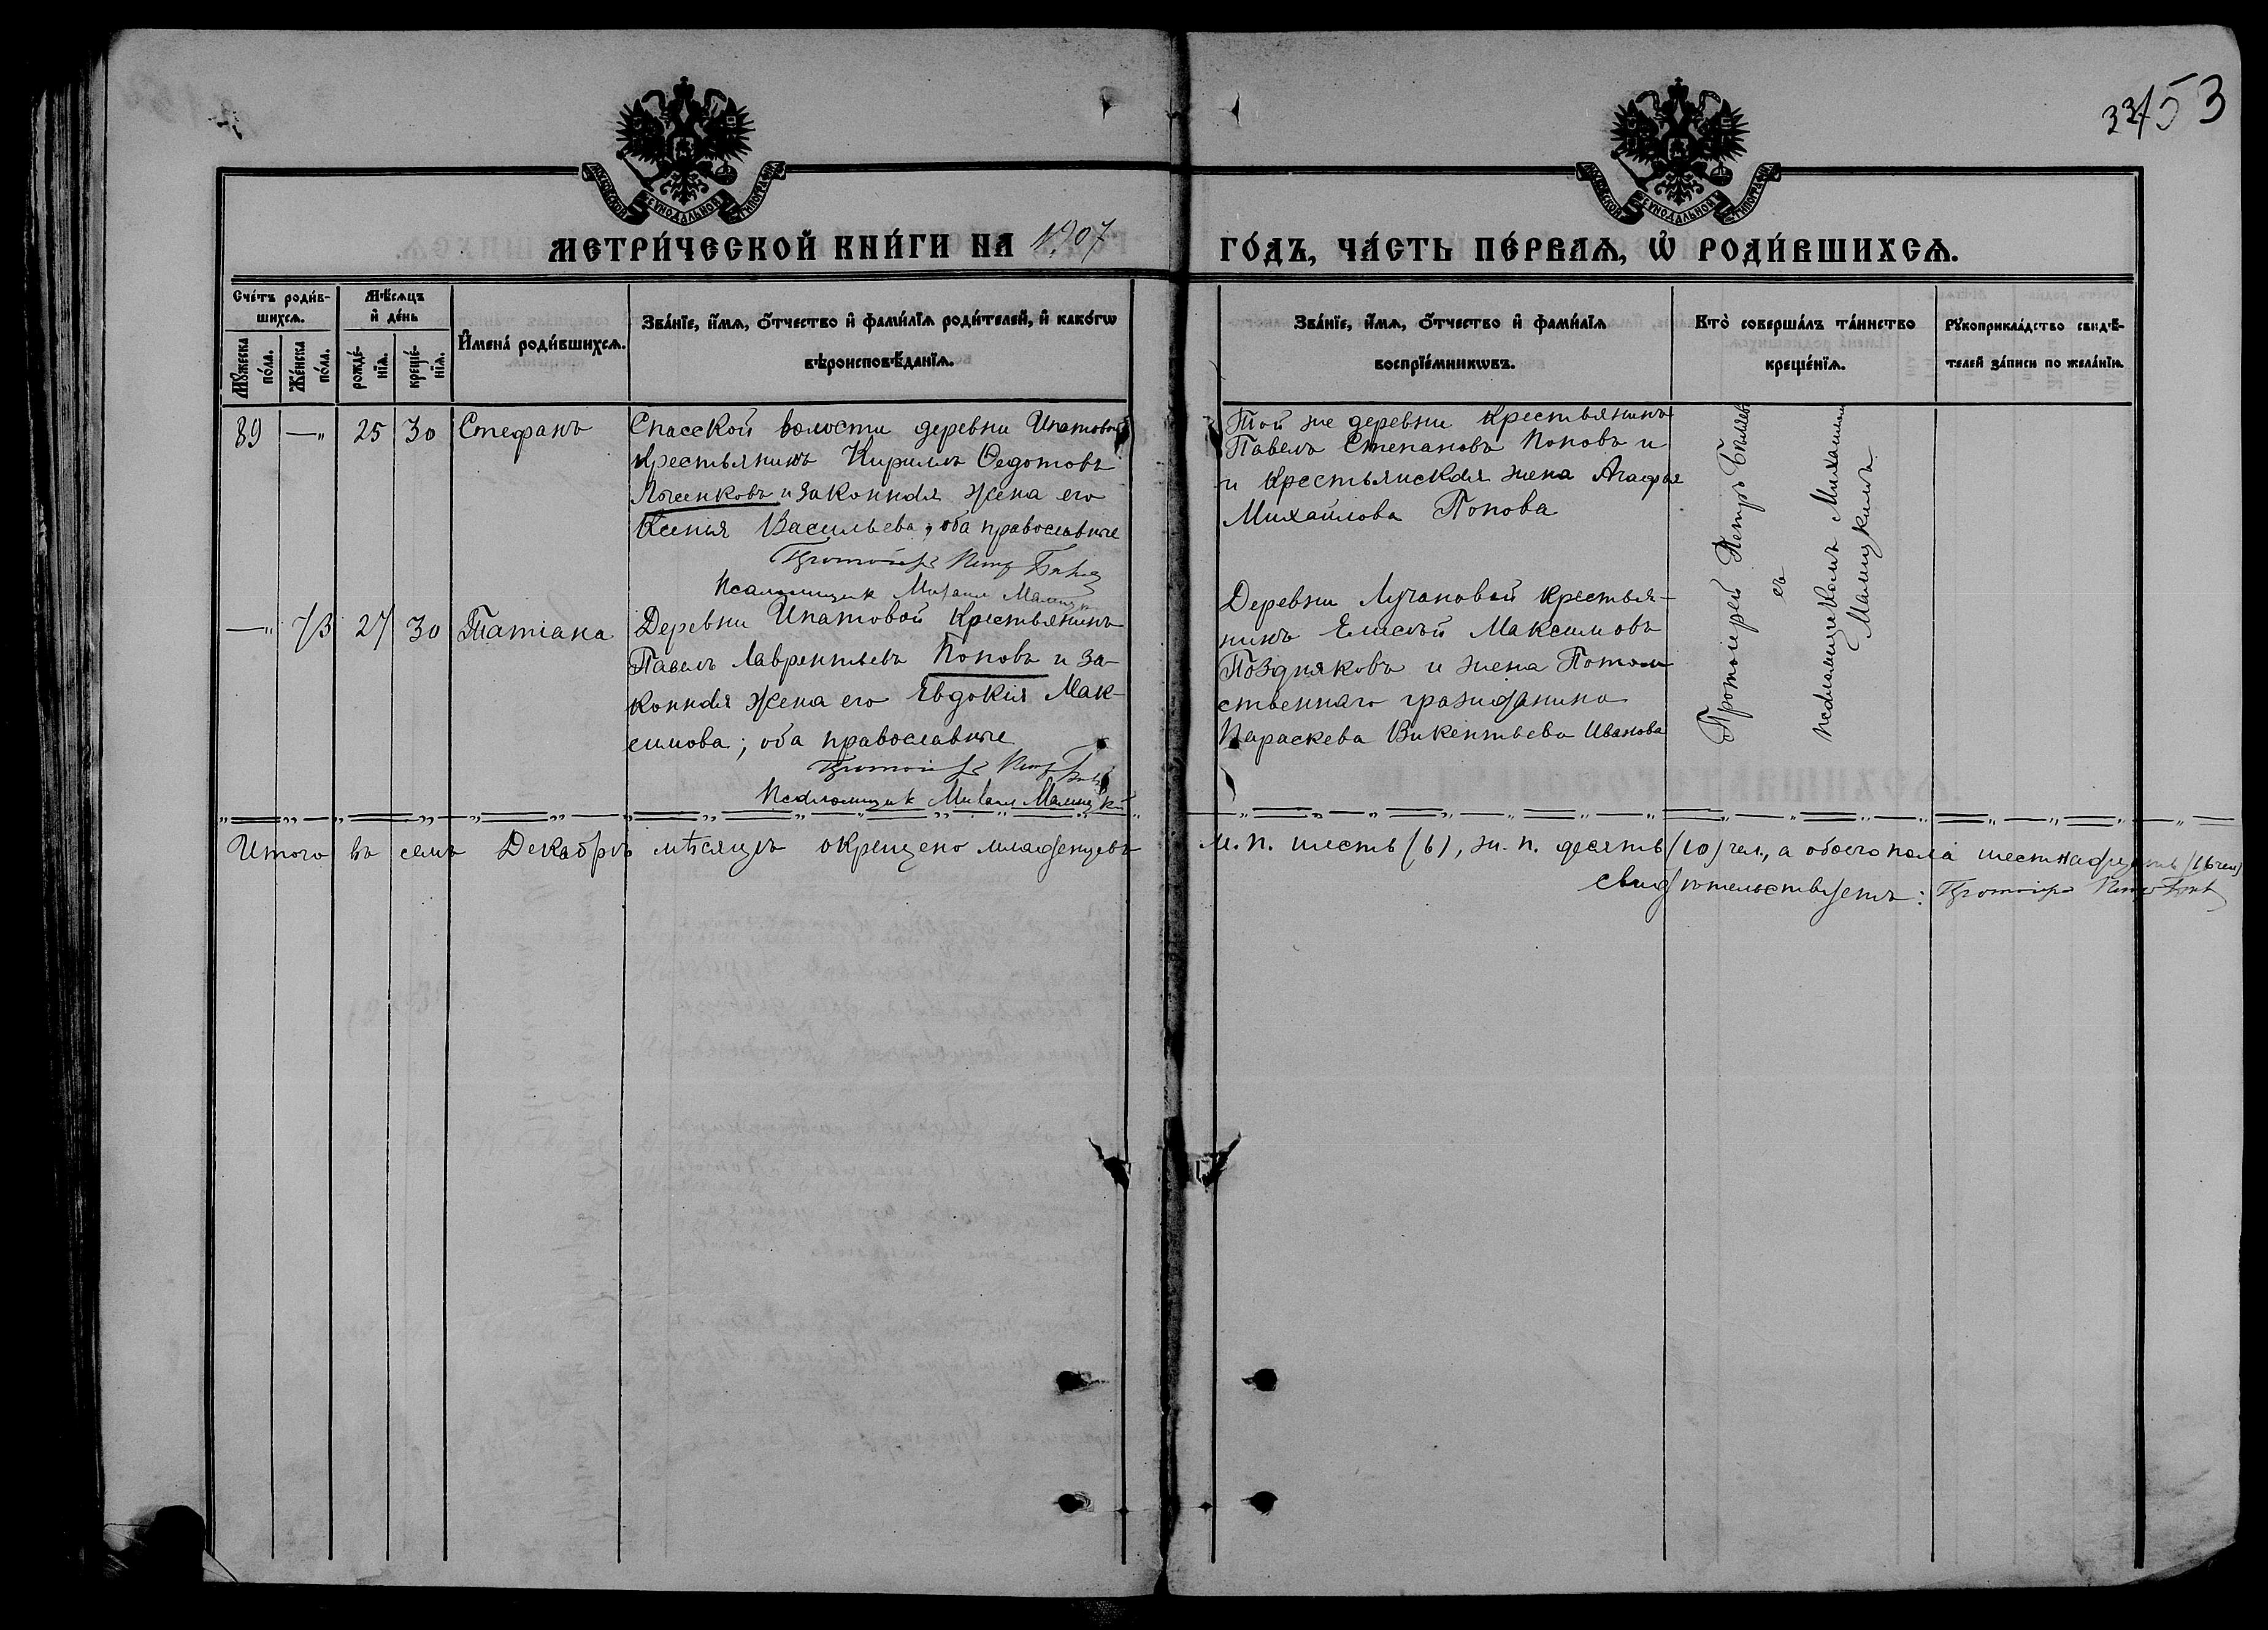 33/53
МОСКОВСКОЙ СУНОДАЛЬНОЙ ТИПОГРАФIИ
МОСКОВСКОЙ СУНОДАЛЬНОЙ ТИПОГРАФIИ
МЕТРИ́ЧЕСКОЙ КНИ́ГИ НА 1907
ГО́ДЪ, ЧА́СТЬ ПЕ́РВАѦ, Ѡ҆ РОДИ́ВШИХСѦ.
Сче́тъ роди́в-
шихсѧ.
Мꙋ́жеска по́ла.
Же́нска по́ла.
Мѣ́сѧцъ
и҆ де́нь
рожде́-
нїѧ.
креще́-
нїѧ.
И҆мена̀ роди́вшихсѧ.
Зва́нїе, и҆́мѧ, ѻ҆́тчество и҆ фами́лїѧ роди́телей, и҆ како́гѡ
вѣроисповѣ́данїѧ.
Зва́нїе, и҆́мѧ, ѻ҆́тчество и҆ фами́лїѧ
воспрїе́мникѡвъ.
Кто̀ соверша́лъ та́инство
креще́нїѧ.
Рꙋкоприкла́дство свидѣ́-
телей за́писи по жела́нїю.
89 —„ 25 30 Стефанъ
Спасской волости деревни Ипатовой
крестьянинъ Кириллъ Ѳедотовъ
Логенковъ и законная жена его
Ксенія Васильева, оба православные
Протоіерей Петръ
Псаломщик Михаил
Той же деревни крестьянинъ
Павелъ Степановъ Поповъ и
и крестьянская жена Агафья
Михайлова Попова
Протоіерей Петръ Бѣляевъ
съ
псаломщикомъ Михаиломъ
Малицкимъ
—„ 73 27 30 Татіана
Деревни Ипатовой крестьянинъ
Павелъ Лаврентьевъ Поповъ и за-
конная жена его Евдокія Мак-
симова; оба православные
Протоіерей Петръ
Псаломщик Михаил Малицкій
Деревни Лучановой крестья-
нинъ Елисѣй Максимовъ
Поздняковъ и жена Потом-
ственнаго гражданина
Параскева Викентьева Иванова
Итого въ семъ Декабрѣ мѣсяцѣ окрещено младенцевъ м. п. шесть (6), ж. п. десять (10) чел., а обоего пола шестнадцать (16 чел)
свидѣтельствуетъ: Протоіерей Петръ